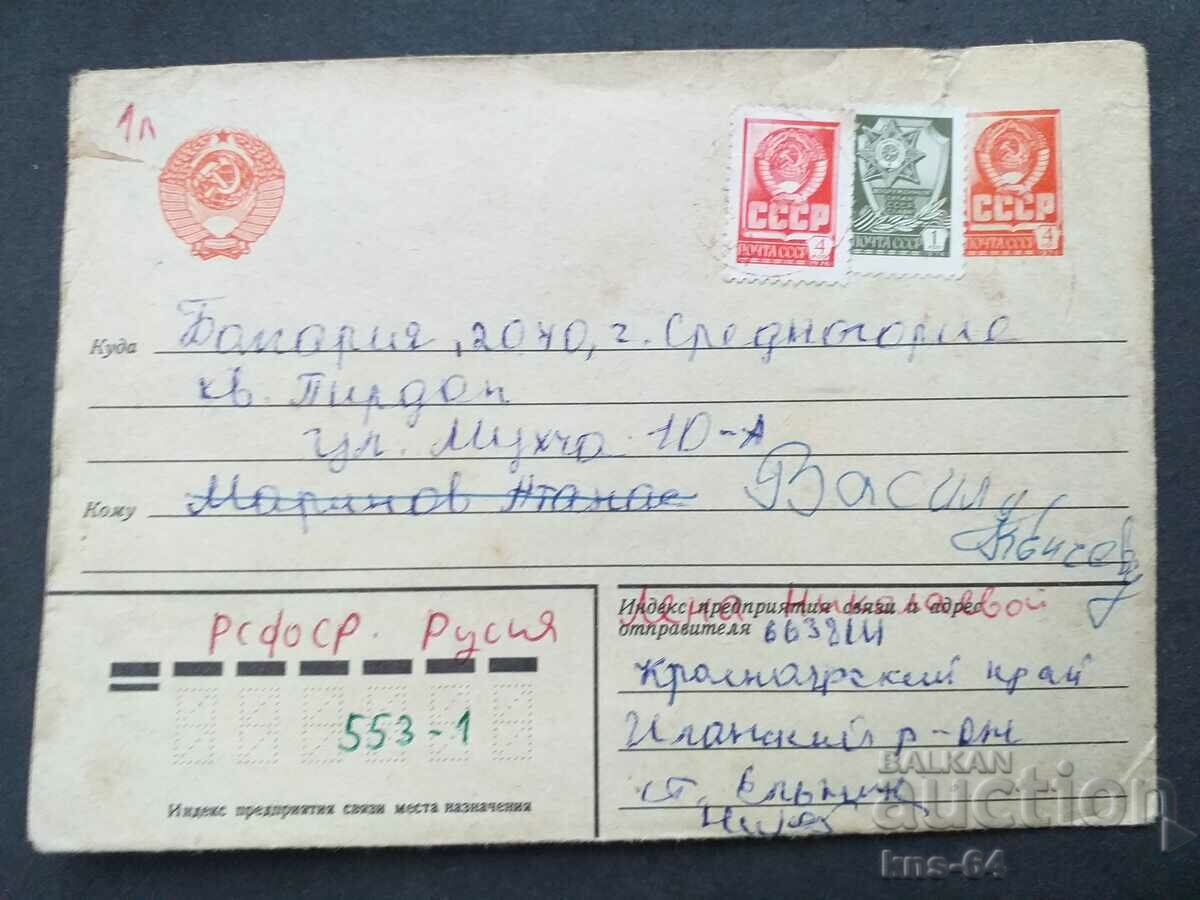 1л
СССР
ПОЧТА СССР 4
1976
ПОЧТА СССР 1
1976
СССР
ПОЧТА СССР 4
Куда Болгария, 2040, г. Средногорие
кв. Пирдоп
ул. Мухчо 10-А
Кому Маринов Атанас Васил
Индекс предприятия связи и адрес
отправителя 6638111
Лена Николаевой
РСФОСР. Русия
Красноярский край
553-1
Иланский р-он
ст.
Индекс предприятия связи места назначения
BALKAN
auction
kns-64